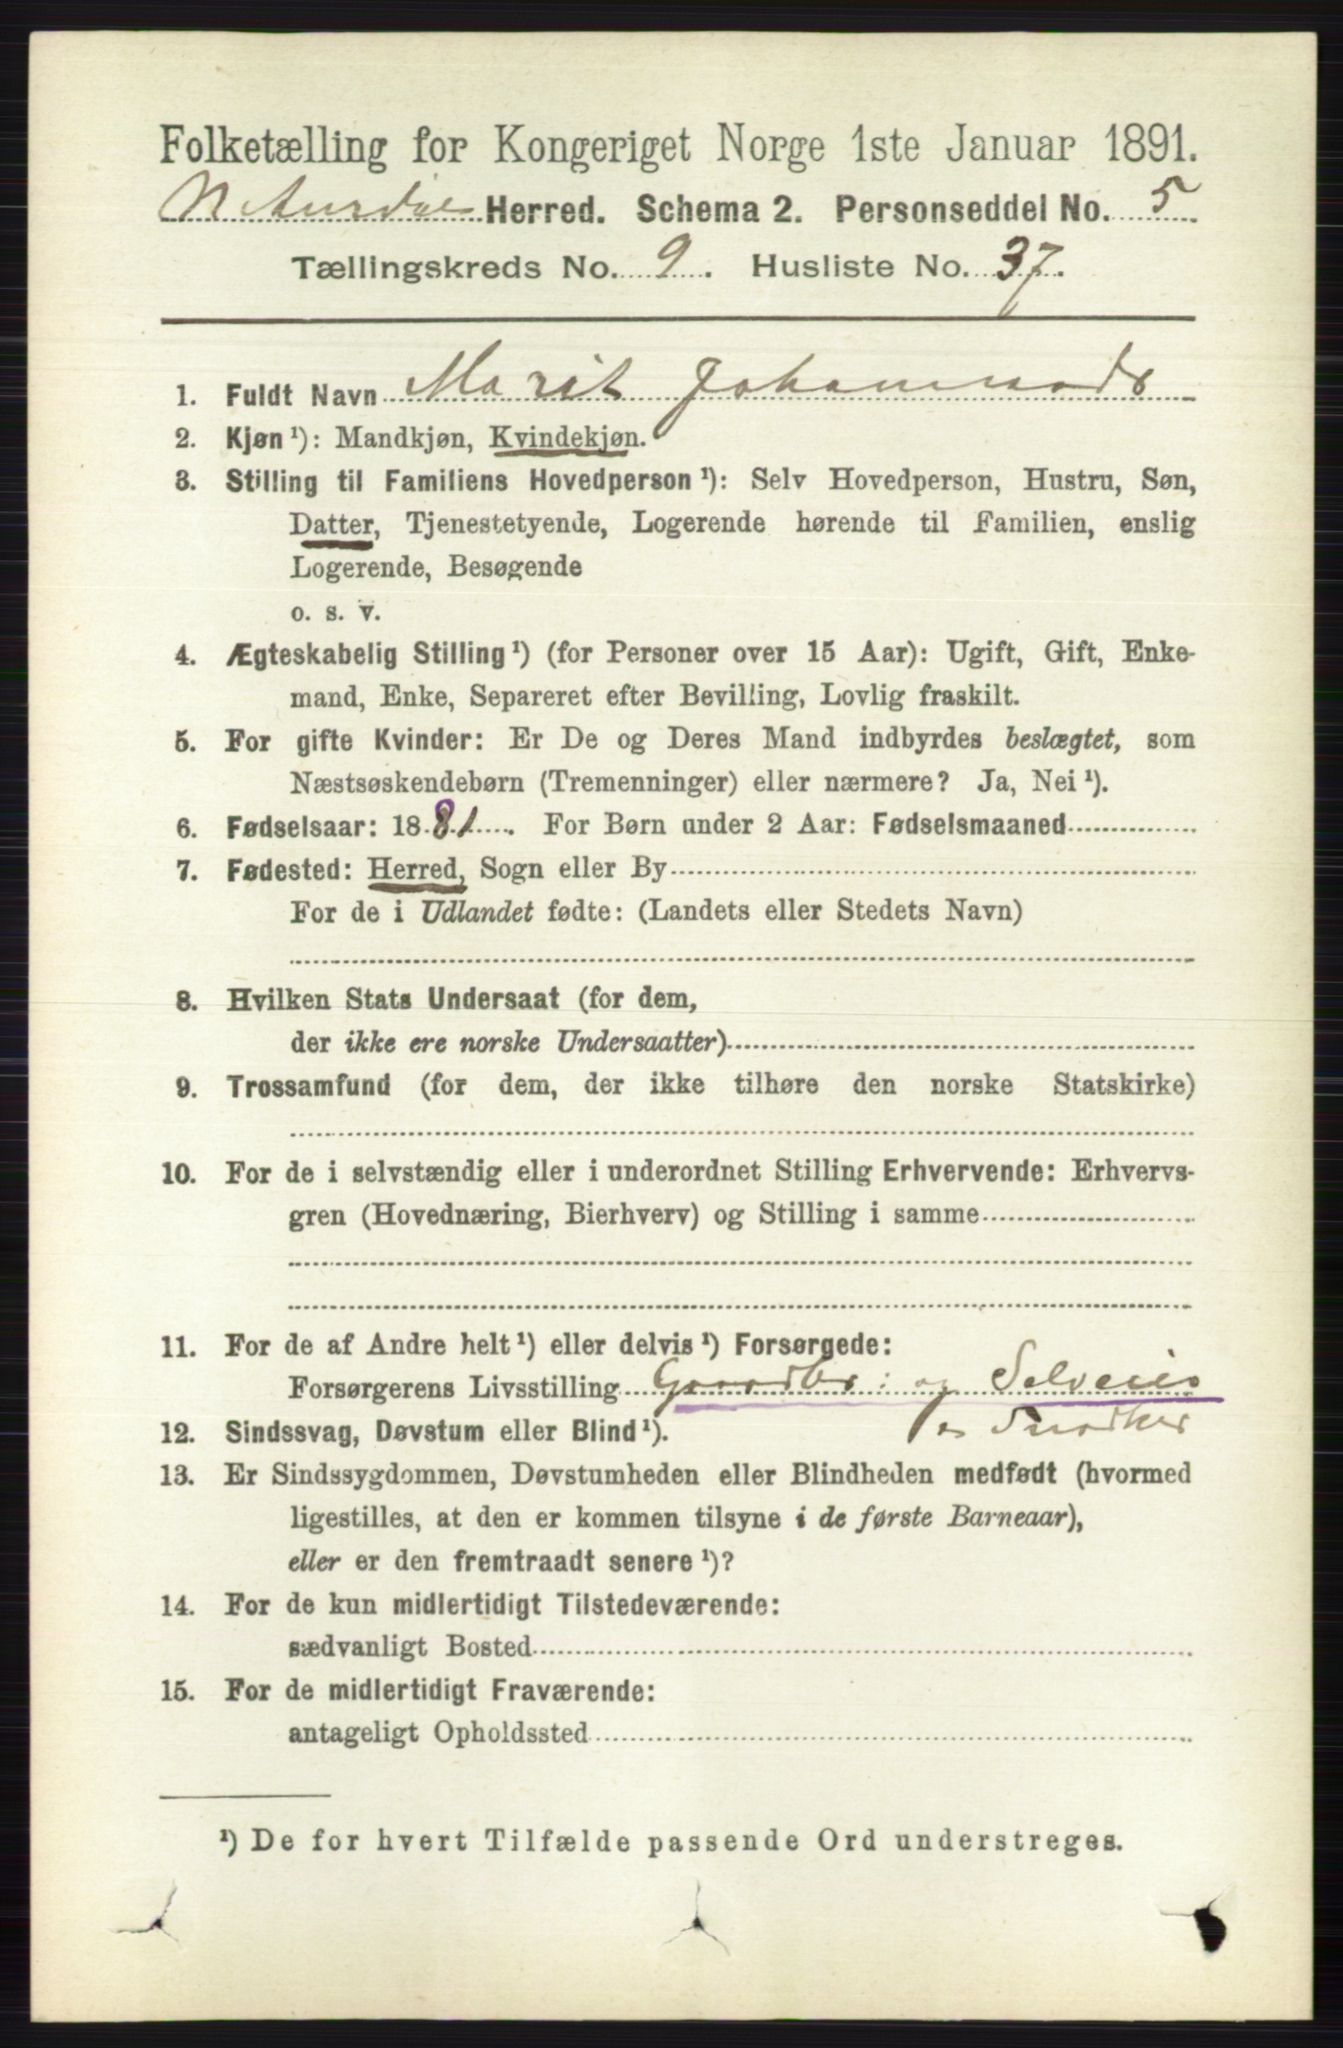 Folketælling for Kongeriget Norge 1ste Januar 1891.
N Aurdal Herred. Schema 2. Personseddel No. 5
Tællingskreds No. 9. Husliste No. 37.
1. Fuldt Navn Marit
2. Kjøn ¹): Mandkjøn, Kvindekjøn.
3. Stilling til Familiens Hovedperson ¹): Selv Hovedperson, Hustru, Søn,
Datter, Tjenestetyende, Logerende hørende til Familien, enslig
Logerende, Besøgende
o. s. v.
4. Ægteskabelig Stilling ¹) (for Personer over 15 Aar): Ugift, Gift, Enke-
mand, Enke, Separeret efter Bevilling, Lovlig fraskilt.
5. For gifte Kvinder: Er De og Deres Mand indbyrdes beslægtet, som
Næstsøskendebørn (Tremenninger) eller nærmere? Ja, Nei ¹).
6. Fødselsaar: 1881. For Børn under 2 Aar: Fødselsmaaned
7. Fødested: Herred, Sogn eller By
For de i Udlandet fødte: (Landets eller Stedets Navn)
8. Hvilken Stats Undersaat (for dem,
der ikke ere norske Undersaatter)
9. Trossamfund (for dem, der ikke tilhøre den norske Statskirke)
10. For de i selvstændig eller i underordnet Stilling Erhvervende: Erhvervs-
gren (Hovednæring, Bierhverv) og Stilling i samme
11. For de af Andre helt ¹) eller delvis ¹) Forsørgede:
Forsørgerens Livsstilling Gaardbr: og Selveier
og Snedker
12. Sindssvag, Døvstum eller Blind ¹).
13. Er Sindssygdommen, Døvstumheden eller Blindheden medfødt (hvormed
ligestilles, at den er kommen tilsyne i de første Barneaar),
eller er den fremtraadt senere ¹)?
14. For de kun midlertidigt Tilstedeværende:
sædvanligt Bosted
15. For de midlertidigt Fraværende:
antageligt Opholdssted
¹) De for hvert Tilfælde passende Ord understreges.